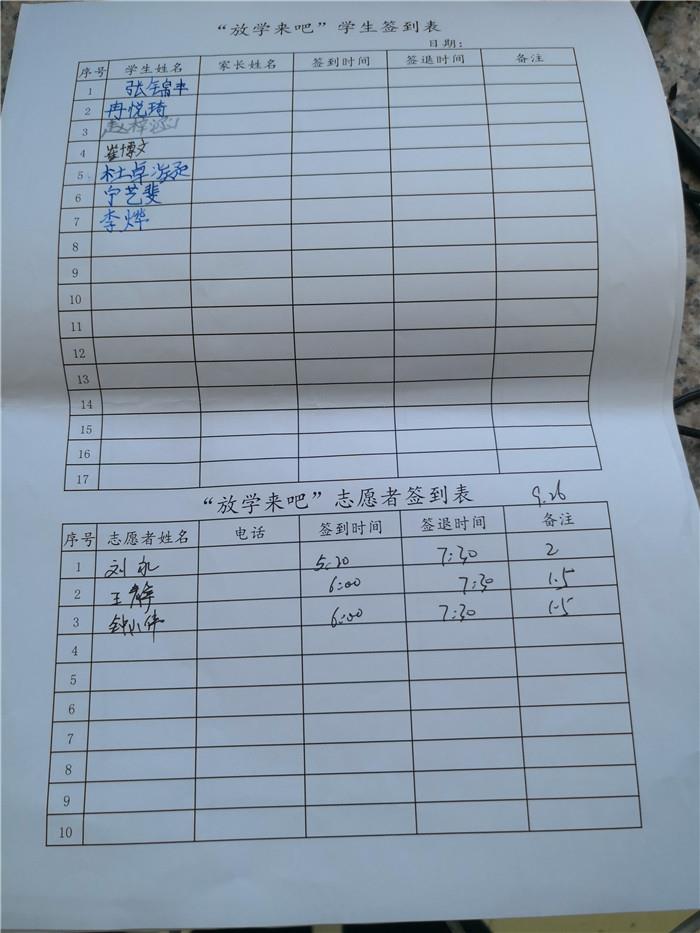 “放学来吧”学生签到表
日期:
序号 学生姓名 家长姓名 签到时间 签退时间 备注
1 张锦丰
2 冉悦琦
3
4 崔博文
5 杜卓
6 宁艺斐
7 李烨
8
9
10
11
12
13
14
15
16
17
“放学来吧”志愿者签到表 9.26
序号 志愿者姓名 电话 签到时间 签退时间 备注
1 刘 5:30 7:30 2
2 王静 6:00 7:30 1.5
3 钟小伟 6:00 7:30 1.5
4
5
6
7
8
9
10